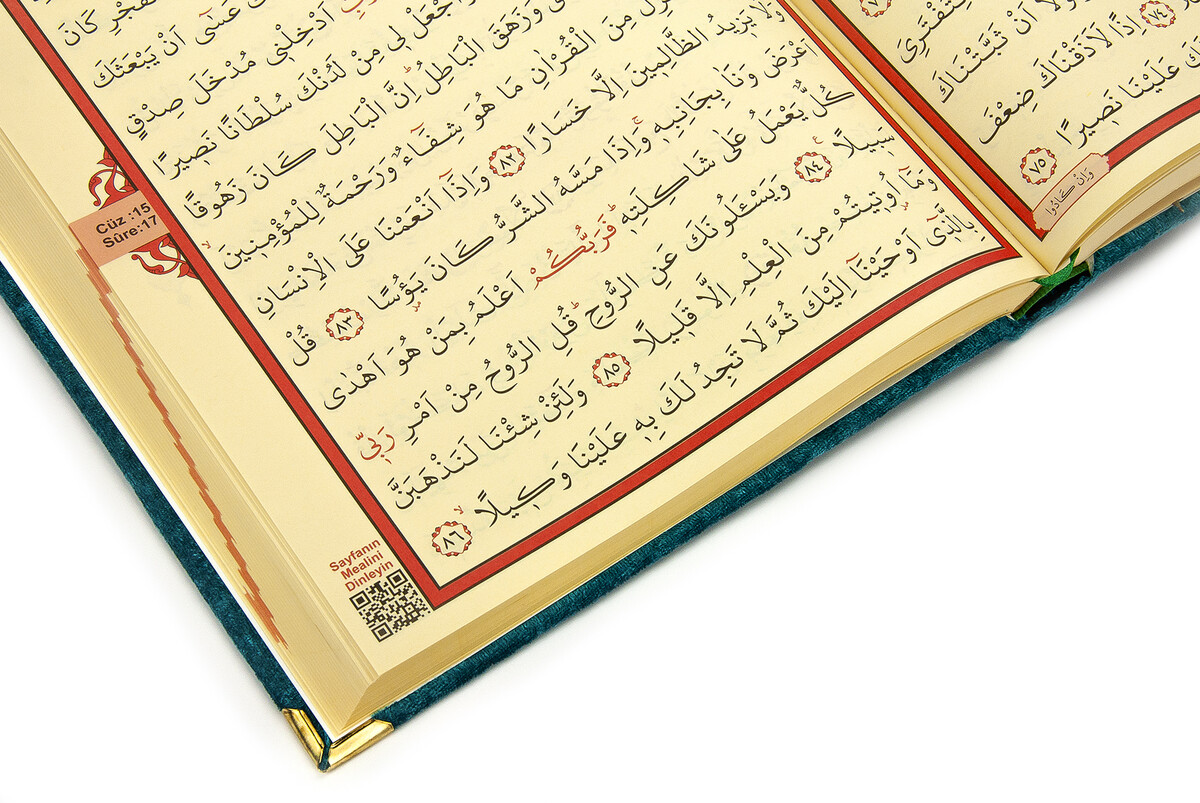 لِتَفْتَرِىَ
وَلَوْلَٓا اَنْ ثَبَّتْنَاكَ
٧٤ اِذًا لَاَذَقْنَاكَ ضِعْفَ
لَكَ عَلَيْنَا نَصٖيرًا ٧٥
وَاِنْ كَادُوا
الْفَجْرِ كَانَ
عَسٰٓى اَنْ يَبْعَثَكَ
اَدْخِلْنٖى مُدْخَلَ صِدْقٍ
وَاجْعَلْ لٖى مِنْ لَدُنْكَ سُلْطَانًا نَصٖيرًا
وَزَهَقَ الْبَاطِلُ اِنَّ الْبَاطِلَ كَانَ زَهُوقًا
مِنَ الْقُرْاٰنِ مَا هُوَ شِفَٓاءٌ وَرَحْمَةٌ لِلْمُؤْمِنٖينَ
وَلَا يَزٖيدُ الظَّالِمٖينَ اِلَّا خَسَارًا ٨٢ وَاِذَٓا اَنْعَمْنَا عَلَى الْاِنْسَانِ
اَعْرَضَ وَنَاٰ بِجَانِبِهٖ وَاِذَا مَسَّهُ الشَّرُّ كَانَ يَؤُسًا ٨٣ قُلْ
كُلٌّ يَعْمَلُ عَلٰى شَاكِلَتِهٖ فَرَبُّكُمْ اَعْلَمُ بِمَنْ هُوَ اَهْدٰى
سَبٖيلًا ٨٤ وَيَسْـَٔلُونَكَ عَنِ الرُّوحِ قُلِ الرُّوحُ مِنْ اَمْرِ رَبّٖى
وَمَٓا اُو۫تٖيتُمْ مِنَ الْعِلْمِ اِلَّا قَلٖيلًا ٨٥ وَلَئِنْ شِئْنَا لَنَذْهَبَنَّ
بِالَّذٖٓى اَوْحَيْنَٓا اِلَيْكَ ثُمَّ لَا تَجِدُ لَكَ بِهٖ عَلَيْنَا وَكٖيلًا ٨٦
Cüz :15
Sûre:17
Sayfanın
Mealini
Dinleyin